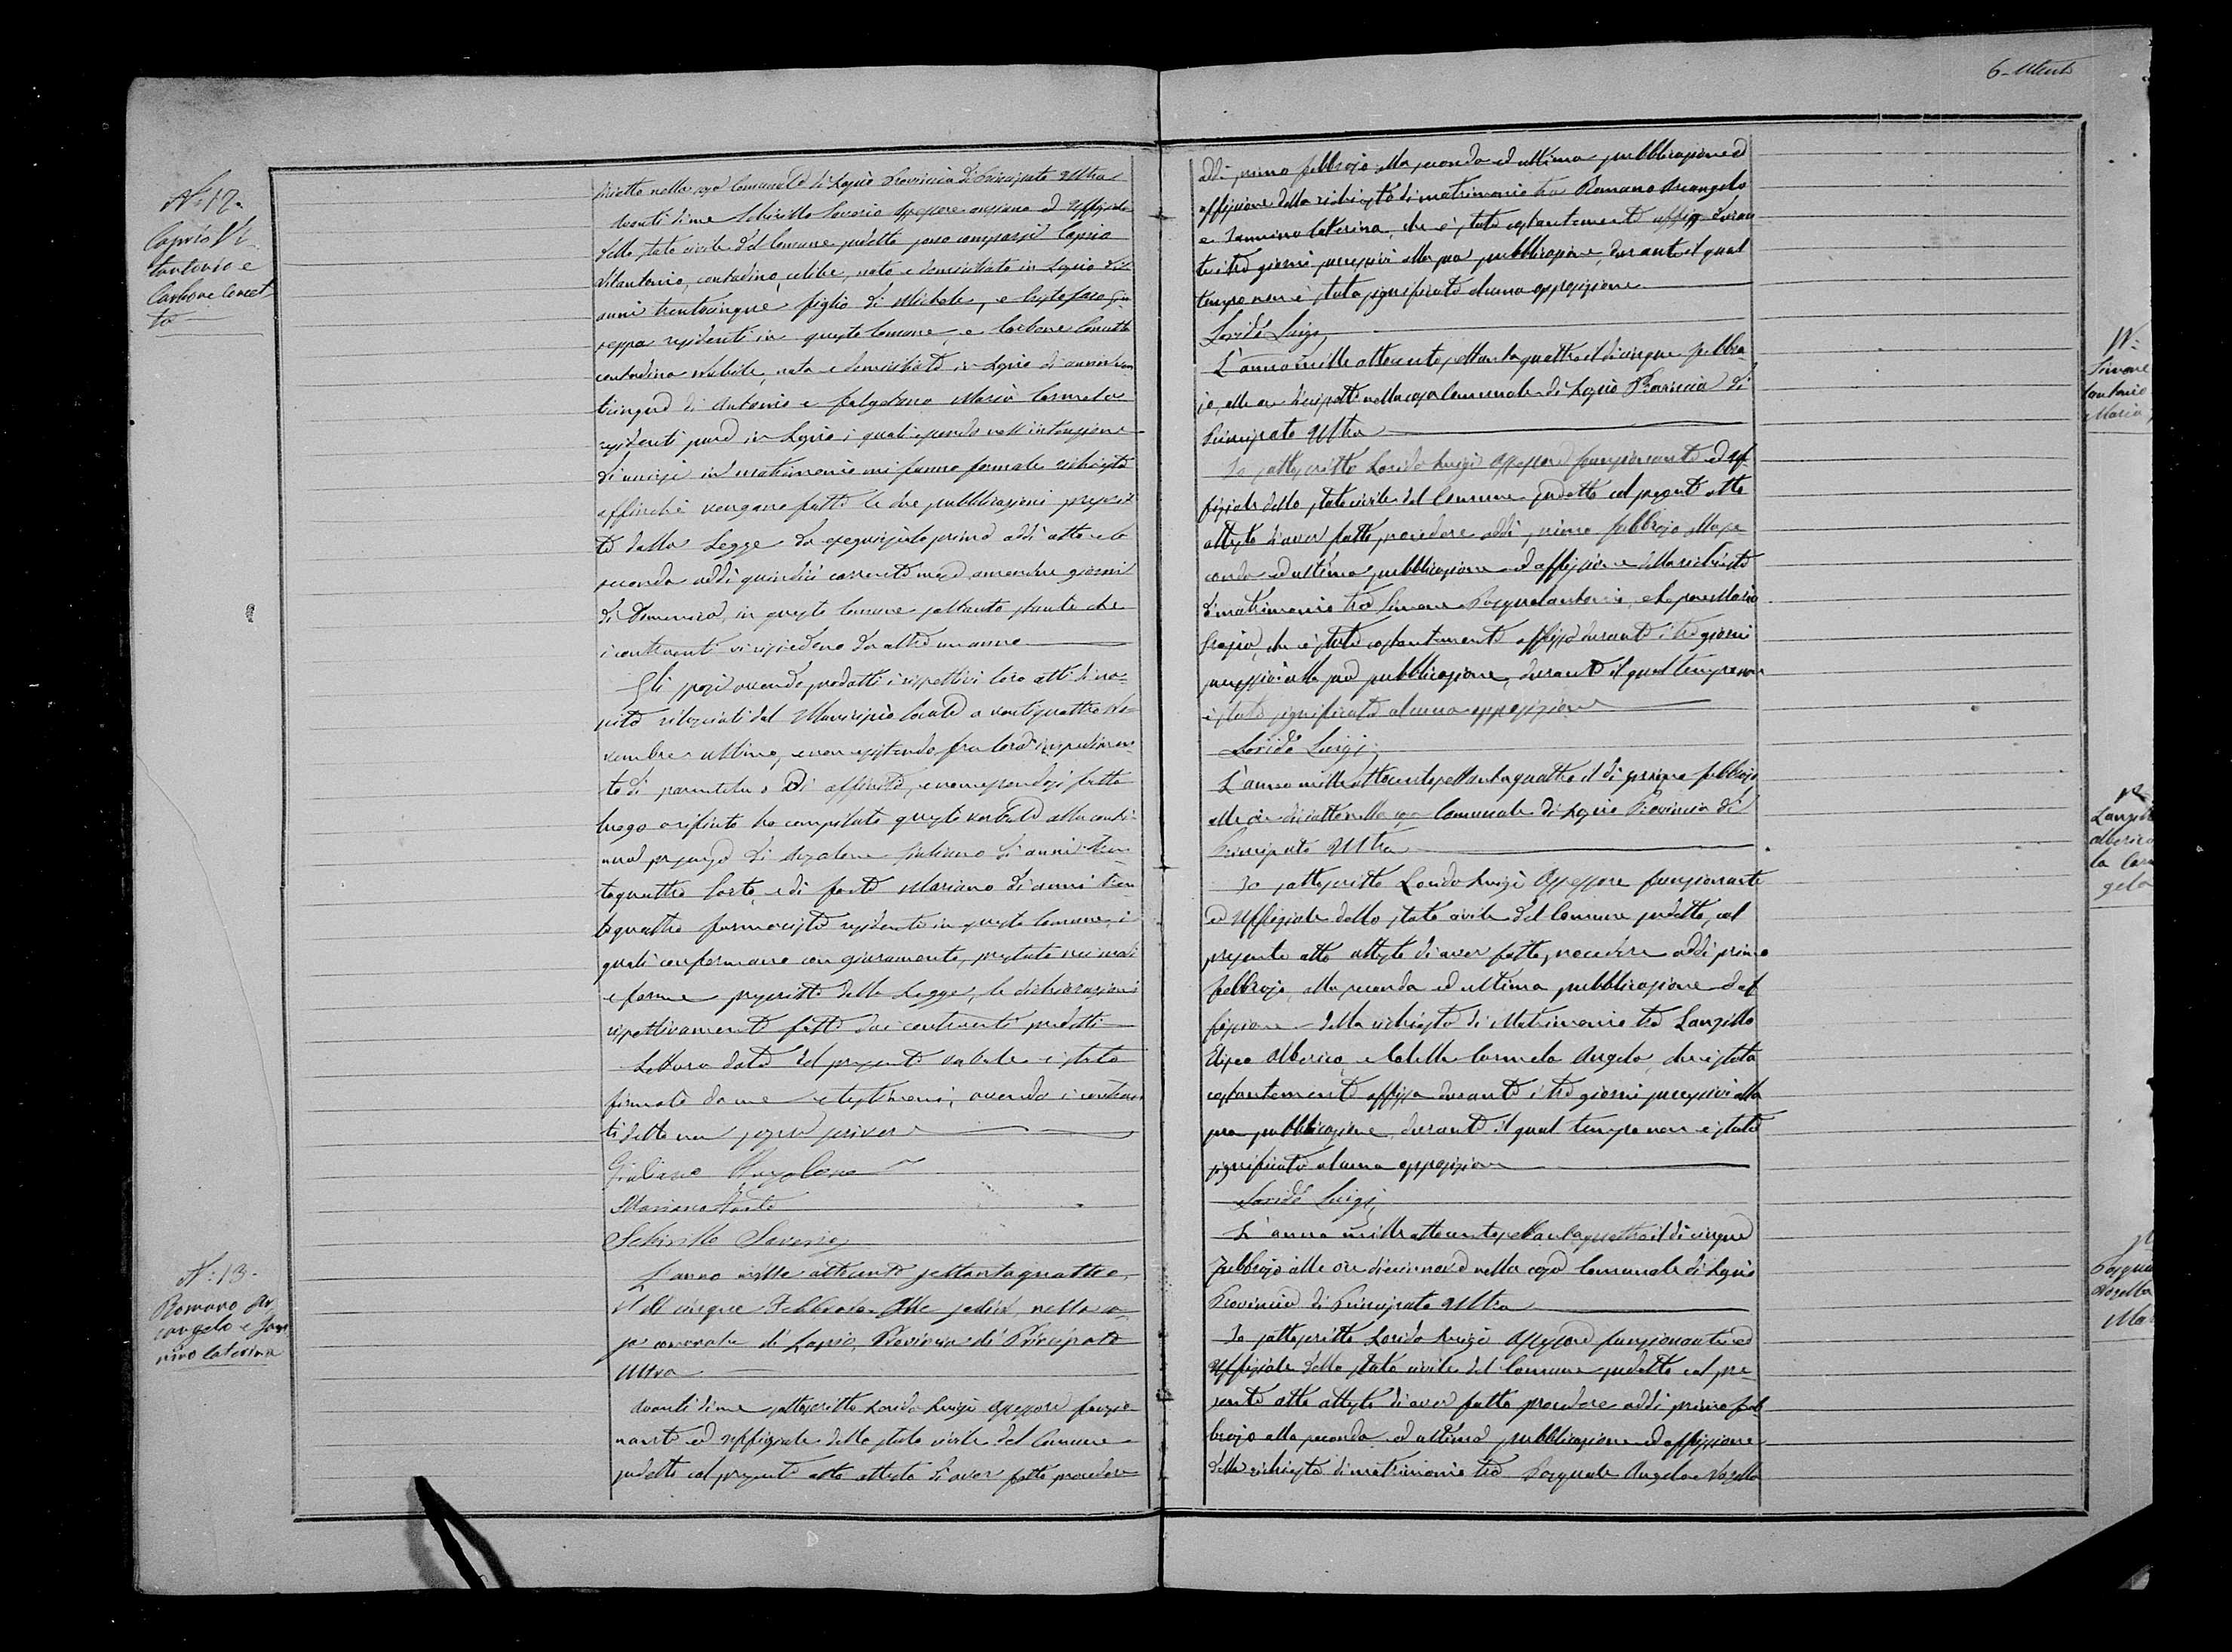 6-
N. 12.
Caprio Vi
tantonio e
Carbone Concet
ta
nella casa Comunale di Lapio Provincia di Principato Ultra
Avanti di me Schirillo Saverio Assessore anziano ed Uffiziale
dello stato civile del Comune sudetto sono comparsi Caprio
Vitantonio, contadino, celibe, nato e domiciliato in Lapio di
anni trentacinque figlio di Michele, e Giu
seppa residenti in questo Comune, e Carbone Concetta
contadina nubile, nata e domiciliata in Lapio di anni ven
ticinque di Antonio e Maria Carmela
residenti pure in Lapio i quali essendo nell'intenzione
di unirsi in matrimonio mi fanno formale richiesta
affinchè vengano fatte le due pubblicazioni prescrit
te dalla Legge da eseguirsi la prima addì otto e la
seconda addì quindici corrente mese amendue giorni
di Domenica, in questo Comune soltanto stante che
i contraenti vi risiedono da oltre un anno
Gli sposi avendo prodotti i rispettivi loro atti di na-
scita rilasciati dal Municipio locale a ventiquattro No-
vembre ultimo, e non esistendo fra loro impedimen
to di parentela o di affinità, e non essendosi fatto
luogo a rifiuto ho compilato questo verbale alla conti-
nua presenza di Giuliano di anni tren
taquattro sarto, e di Forte Mariano di anni tren
taquattro farmacista residenti in questo Comune, i
quali confermano con giuramento, prestato nei modi
e forme prescritte dalla Legge, le dichiarazioni
rispettivamente fatte dai contraenti predetti
Lettura data del presente verbale è stato
firmato da me e testimoni, avendo i contraen
ti detto non saper scrivere
Giuliano
Mariano Forte
Schirillo Saverio
N. 13.
Romano Ar
cangelo e Jan
nino Caterina
L'anno mille ottocento settantaquattro,
il dì cinque Febbraio alle sedici nella ca-
sa comunale di Lapio, Provincia di Principato
Ultra
Avanti di me sottoscritto Lorido Luigi Assessore funzio
nante ed Uffiziale dello stato civile del Comune
sudetto col presente atto attesto di aver fatto procedere
addì primo febbrajo alla seconda ed ultima pubblicazione ed
affissione della richiesta di matrimonio tra Romano Arcangelo
e Jannino Caterina, che è stata costantemente affissa duran
te i tre giorni successivi alla sua pubblicazione, durante il qual
tempo non è stata significata alcuna opposizione
Lorido Luigi
L'anno mille ottocento settantaquattro il dì cinque febbra
jo, alle ore diciasette nella casa Comunale di Lapio Provincia di
Principato Ultra
Io sottoscritto Lorido Luigi Assessore funzionante ed Uf
fiziale dello stato civile del Comune sudetto col presente atto
attesto di aver fatto procedere addì primo febbrajo alla se
conda ed ultima pubblicazione ed affissione della richiesta
di matrimonio tra Simone Pasqualantonio, e Maria
che è stata costantemente affissa durante i tre giorni
successivi alla sua pubblicazione, durante il qual tempo non
è stata significata alcuna opposizione
Lorido Luigi
L'anno mille ottocento settantaquattro il dì cinque febbrajo
alle ore diciotto nella casa Comunale di Lapio Provincia di
Principato Ultra
Io sottoscritto Lorido Luigi Assessore funzionante
ed Uffiziale dello stato civile del Comune sudetto, col
presente atto attesto di aver fatto procedere addì primo
febbrajo, alla seconda ed ultima pubblicazione ed af
fissione della richiesta di Matrimonio tra Lanzillo
Eliseo Alberico e Carmela Angela, che è stata
costantemente affissa durante i tre giorni successivi alla
sua pubblicazione durante il qual tempo non è stata
significata alcuna opposizione
Lorido Luigi
L'anno mille ottocento settantaquattro il dì cinque
Febbrajo alle ore diecinnove nella casa Comunale di Lapio
Provincia di Principato Ultra
Io sottoscritto Lorido Luigi Assessore funzionante ed
Uffiziale dello stato civile del Comune sudetto col pre-
sente atto attesto di aver fatto procedere addì primo feb
brajo alla seconda ed ultima pubblicazione ed affissione
della richiesta di matrimonio tra Pasquale Angelo e
N.
Simone
lantonio
Maria
Lanzill
Alberico
la Car
gela
Pasqua
Ma